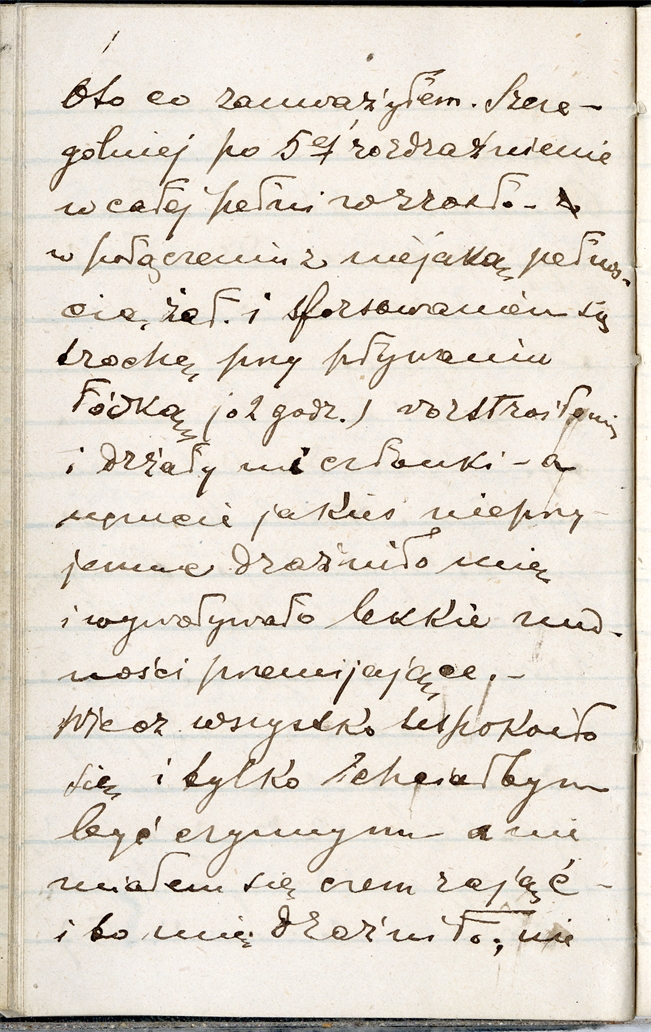 Oto co zauważyłem. Szcze-
gólniej po 5ej rozdrażnienie
w całej pełni wzrosło -
w połączeniu z niejaką pełnoś-
cią żoł. i sforsowaniem się
trochę przy pływaniu
łódką (o 2 godz.) rozstroiłem
i drżały mi członki - a
uczucie jakieś nieprzy-
jemne drażniło mię
i wywoływało lekkie nud-
ności przemijające. -
wszystko uspokoiło
się i tylko chciałbym
być czynnym a nie
miałem się czem zająć -
i to mię drażniło, nie